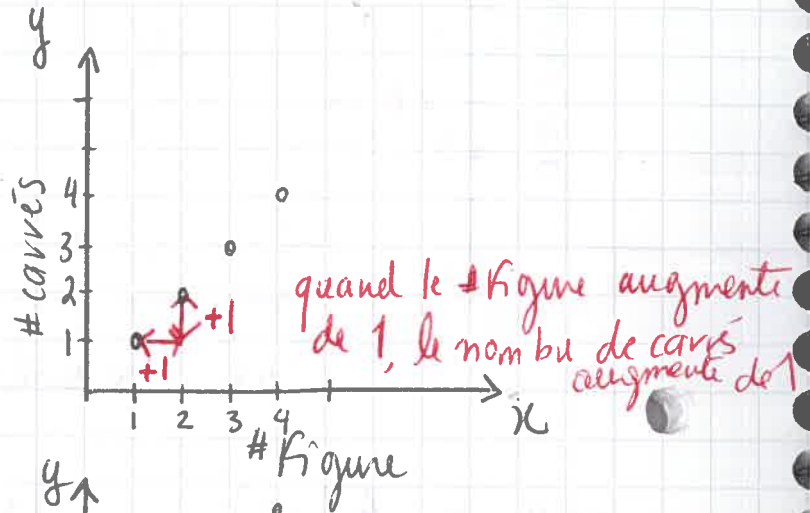 y
# carrés
4
3
2
1
+1
+1
quand le # Figure augmente
de 1, le nombre de carrés
augmente de 1
1 2 3 4
x
# Figure
y